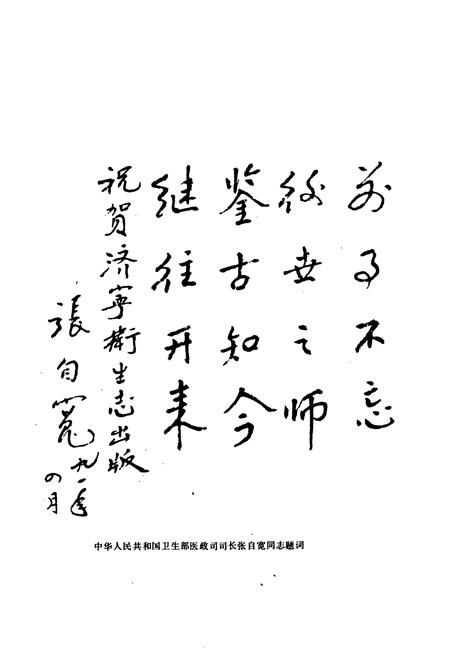 前事不忘
後世之师
鉴古知今
继往开来
祝贺济寧衛生志出版
張自寬
九一年
四月
中华人民共和国卫生部医政司司长张自宽同志题词